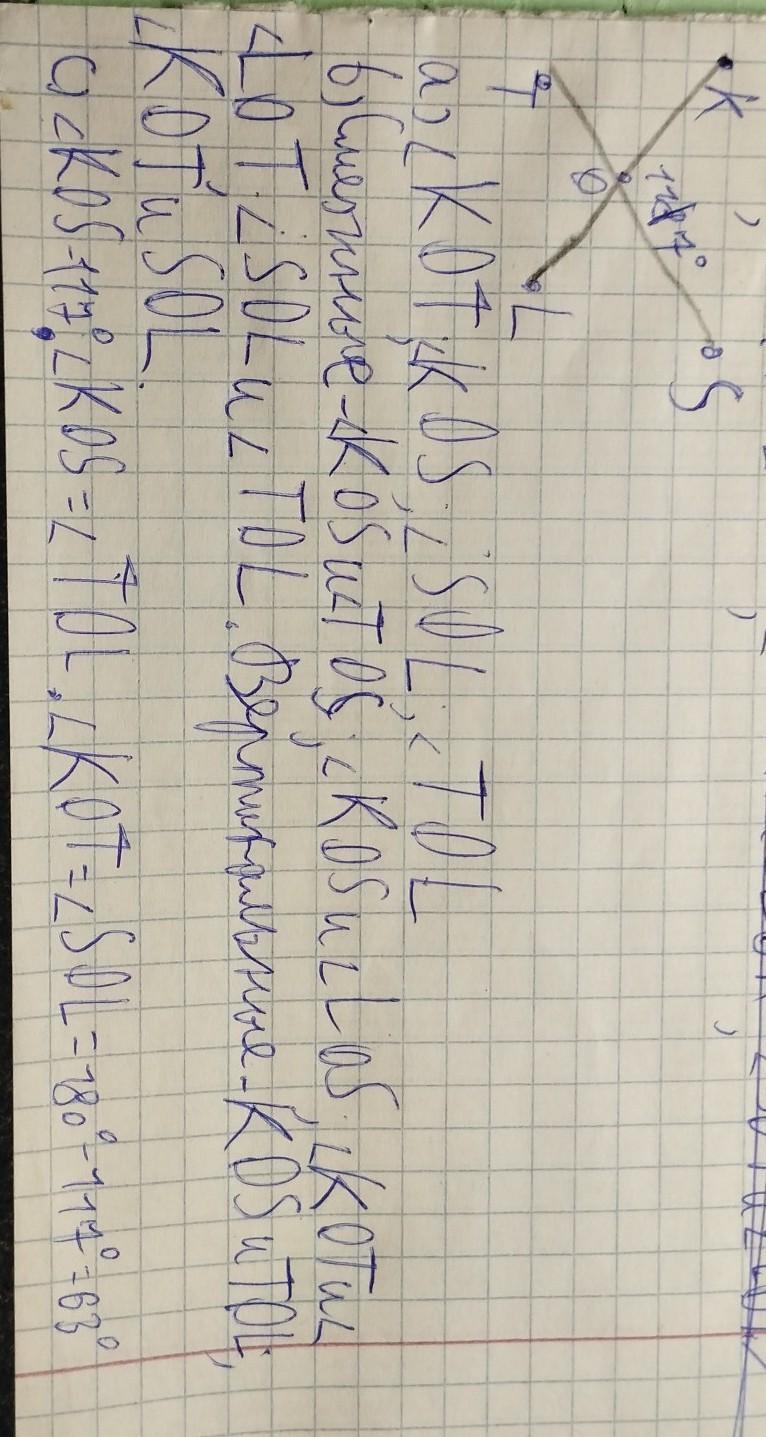 K
117°
S
T
O
L
a) ∠KOT; ∠KOS; ∠SOL; ∠TOL
b) Смежные - ∠KOS и ∠TOS; ∠KOS и ∠LOS; ∠KOT и ∠
LOT; ∠SOL и ∠TOL. Вертикальные - KOS и TOL;
∠KOT и SOL.
c ∠KOS - 117°, ∠KOS = ∠TOL, ∠KOT = ∠SOL = 180° - 117° = 63°